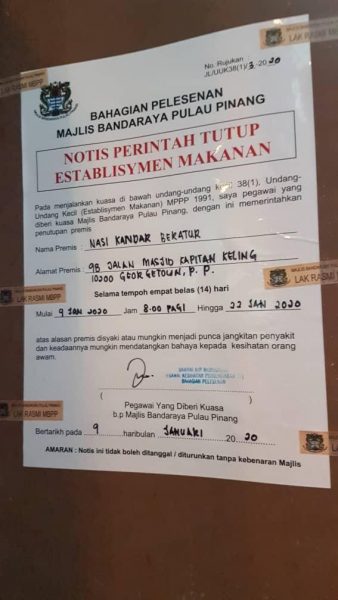 No. Rujukan
JL/UUK38(1)/3/2020
BAHAGIAN PELESENAN
MAJLIS BANDARAYA PULAU PINANG
NOTIS PERINTAH TUTUP
ESTABLISYMEN MAKANAN
Pada menjalankan kuasa di bawah undang-undang kecil 38(1), Undang-
Undang Kecil (Establisymen Makanan) MPPP 1991, saya pegawai yang
diberi kuasa Majlis Bandaraya Pulau Pinang, dengan ini memerintahkan
penutupan premis
Nama Premis : NASI KANDAR BERATUR
Alamat Premis : 98 JALAN MASJID KAPITAN KELING
10200 GEORGETOWN, P. P.
Selama tempoh empat belas (14) hari
Mulai 9 JAN 2020 Jam 8:00 PAGI Hingga 22 JAN 2020
atas alasan premis disyaki atau mungkin menjadi punca jangkitan penyakit
dan keadaannya mungkin mendatangkan bahaya kepada kesihatan orang
awam.
BAHAGIAN PELESENAN
( )
Pegawai Yang Diberi Kuasa
b.p Majlis Bandaraya Pulau Pinang
Bertarikh pada 9 haribulan JANUARI 2020
AMARAN : Notis ini tidak boleh ditanggal / diturunkan tanpa kebenaran Majlis
LAK RASMI MBPP
LAK RASMI MBPP
LAK RASMI MBPP
LAK RASMI MBPP